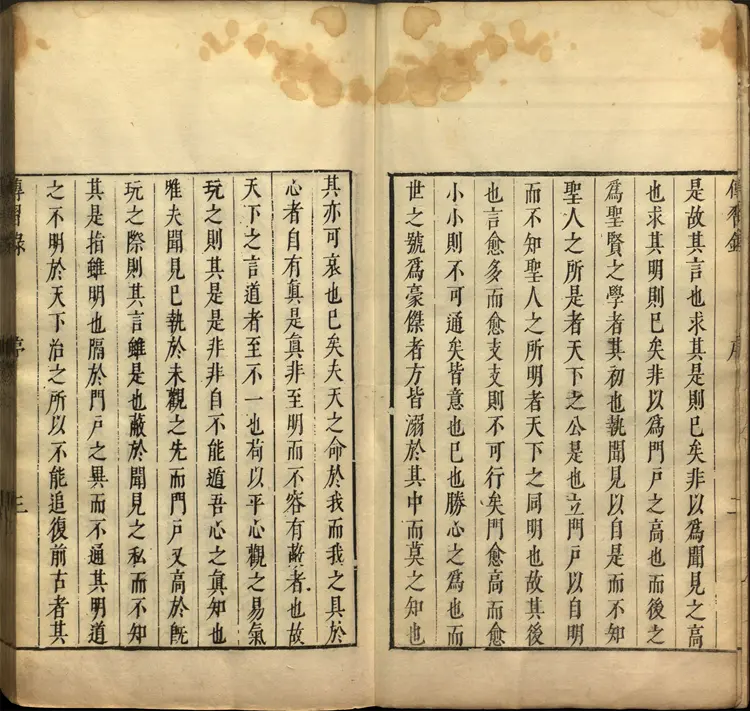 是故其言也求其是則已矣非以爲聞見之高
也求其明則已矣非以爲門戶之高也而後之
爲聖賢之學者其初也執聞見以自是而不知
聖人之所是者天下之公是也立門戶以自明
而不知聖人之所明者天下之同明也故其後
也言愈多而愈支支則不可行矣門愈高而愈
小小則不可通矣皆意也已也勝心之爲也而
世之號爲豪傑者方皆溺於其中而莫之知也
其亦可哀也已矣夫天之命於我而我之具於
心者自有真是真非至明而不容有蔽者也故
天下之言道者至不一也苟以平心觀之易氣
玩之則其是是非非自不能遁吾心之真知也
唯夫聞見已執於未觀之先而門戶又高於旣
玩之際則其言雖是也蔽於聞見之私而不知
其是指雖明也隔於門戶之異而不通其明道
之不明於天下治之所以不能追復前古者其
傳習錄 序 三